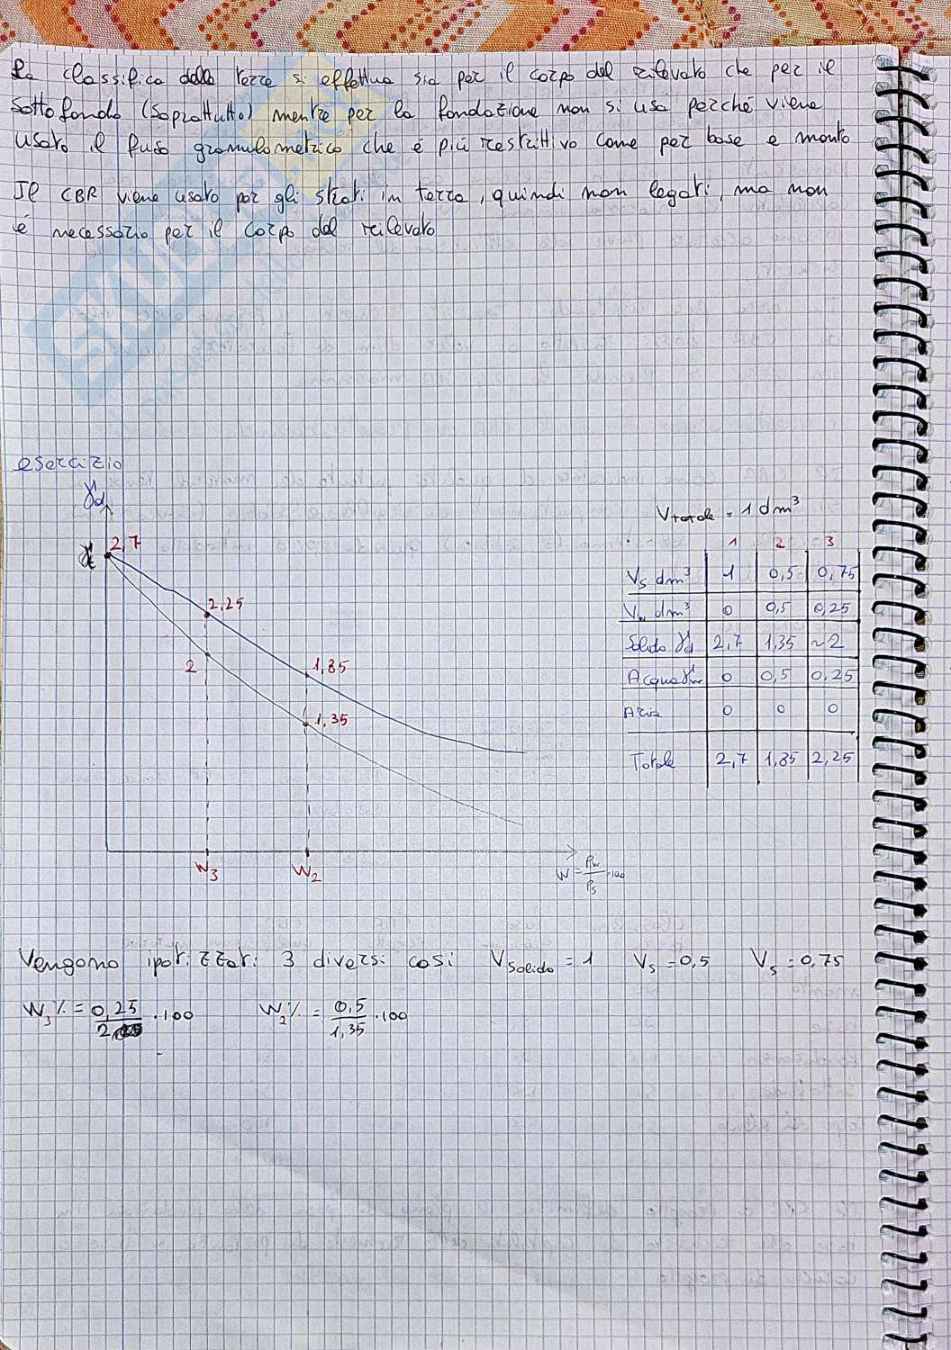 La classifica delle terre si effettua sia per il corpo del rilevato che per il
sottofondo (soprattutto) mentre per la fondazione non si usa perché viene
usato il fuso granulometrico che è più restrittivo come per base e manto
Il CBR viene usato per gli strati in terra, quindi non legati, ma non
è necessario per il corpo del rilevato
esercizio
γd
2,7
2,25
2
1,85
1,35
W3 W2
W = Pw/Ps ·100
Vtotale = 1 dm³
1 2 3
Vs dm³ 1 0,5 0,75
Vw dm³ 0 0,5 0,25
Solido γd 2,7 1,35 ~2
Acqua γw 0 0,5 0,25
Aria 0 0 0
Totale 2,7 1,85 2,25
Vengono ipotizzati 3 diversi casi Vsolido = 1 Vs = 0,5 Vs = 0,75
W3% = 0,25/2 ·100 W2% = 0,5/1,35 ·100